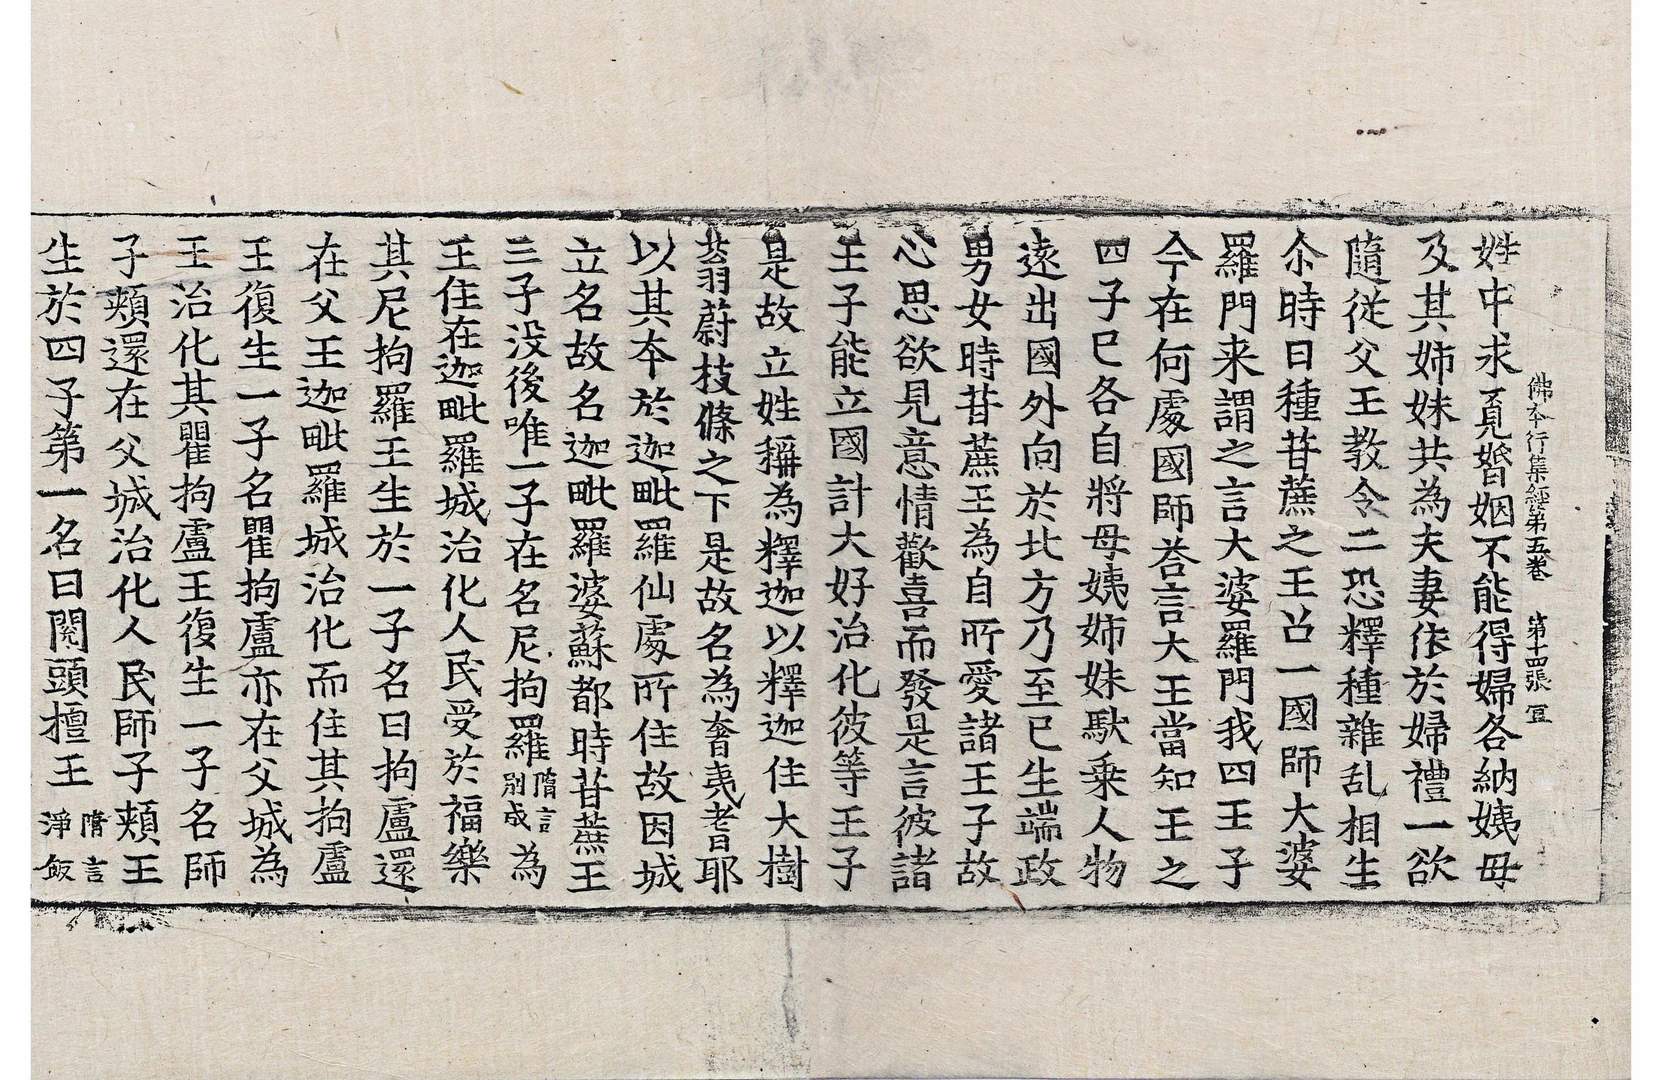 佛本行集經第五卷 第十四張 宜
姓中求覓婚姻不能得婦各納姨母
及其姉妹共為夫妻依於婦禮一欲
隨従父王教令二恐釋種雜乱相生
尒時日種甘蔗之王召一國師大婆
羅門来謂之言大婆羅門我四王子
今在何處國師荅言大王當知王之
四子已各自將母姨姉妹䭾乗人物
遠出國外向於北方乃至已生端政
男女時甘蔗王為自所愛諸王子故
心思欲見意情歡喜而發是言彼諸
王子能立國計大好治化彼等王子
是故立姓稱為釋迦以釋迦住大樹
蓊蔚枝條之下是故名為奢夷耆耶
以其夲於迦毗羅仙處所住故因城
立名故名迦毗羅婆蘇都時甘蔗王
三子没後唯一子在名尼拘羅隋言別成為
王住在迦毗羅城治化人民受於福樂
其尼拘羅王生於一子名曰拘盧還
在父王迦毗羅城治化而住其拘盧
王復生一子名瞿拘盧亦在父城為
王治化其瞿拘盧王復生一子名師
子頰還在父城治化人民師子頰王
生於四子第一名曰閱頭檀王隋言淨飯